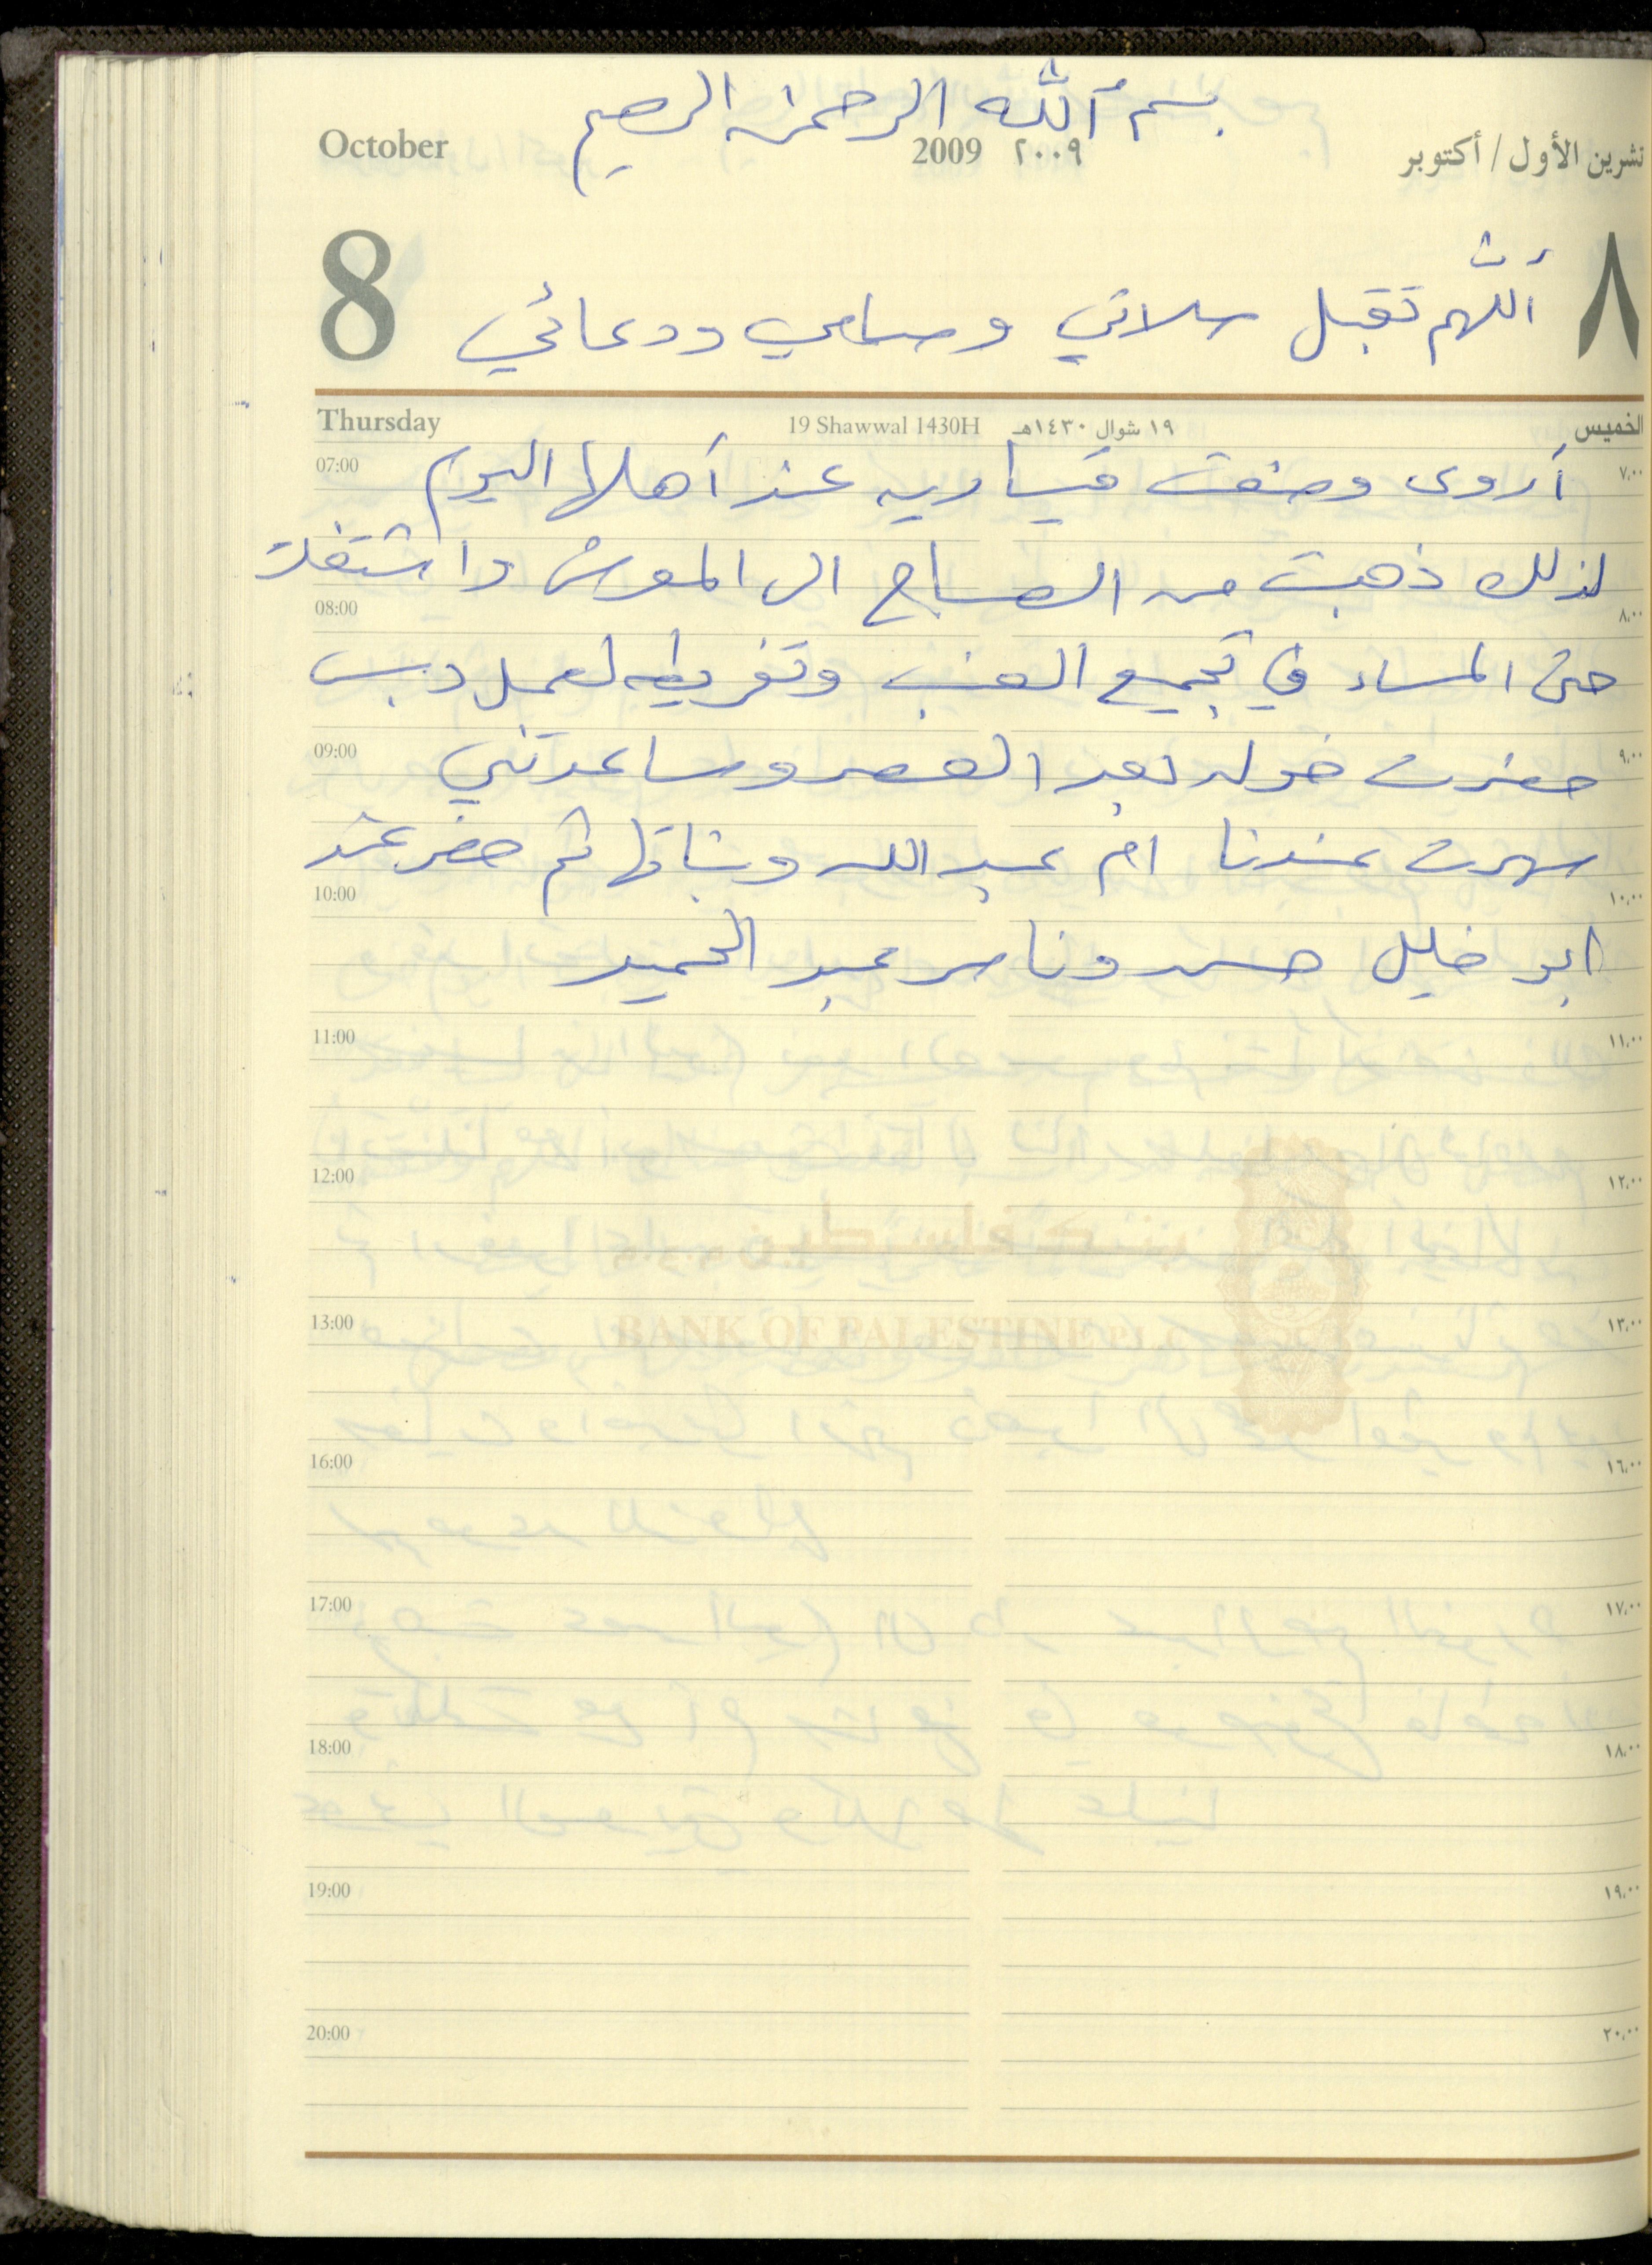 بسم الله الرحمن الرحيم
October 2009 ٢٠٠٩ تشرين الأول / أكتوبر
8 ٨
اللهم تقبل صلاتي وصيامي ودعائي
Thursday 19 Shawwal 1430H ١٩ شوال ١٤٣٠هـ الخميس
07:00 ٧،٠٠
أروى وضعت قيساريه عند أهلها اليوم
لذلك ذهبت من الصباح الى المعرش واشتغلت
08:00 ٨،٠٠
حتى المساء في تجميع العنب وتفريطه لعمل دبس
09:00 ٩،٠٠
حضرت خوله بعد العصر وساعدتني
سهرت عندنا ام عبد الله وبناتها ثم حضر عند
10:00 ١٠،٠٠
ابو خليل حسن وناصر عبد الحميد
11:00 ١١،٠٠
12:00 ١٢،٠٠
بنك فلسطين
13:00 ١٣،٠٠
BANK OF PALESTINE P.L.C
16:00 ١٦،٠٠
17:00 ١٧،٠٠
18:00 ١٨،٠٠
19:00 ١٩،٠٠
20:00 ٢٠،٠٠